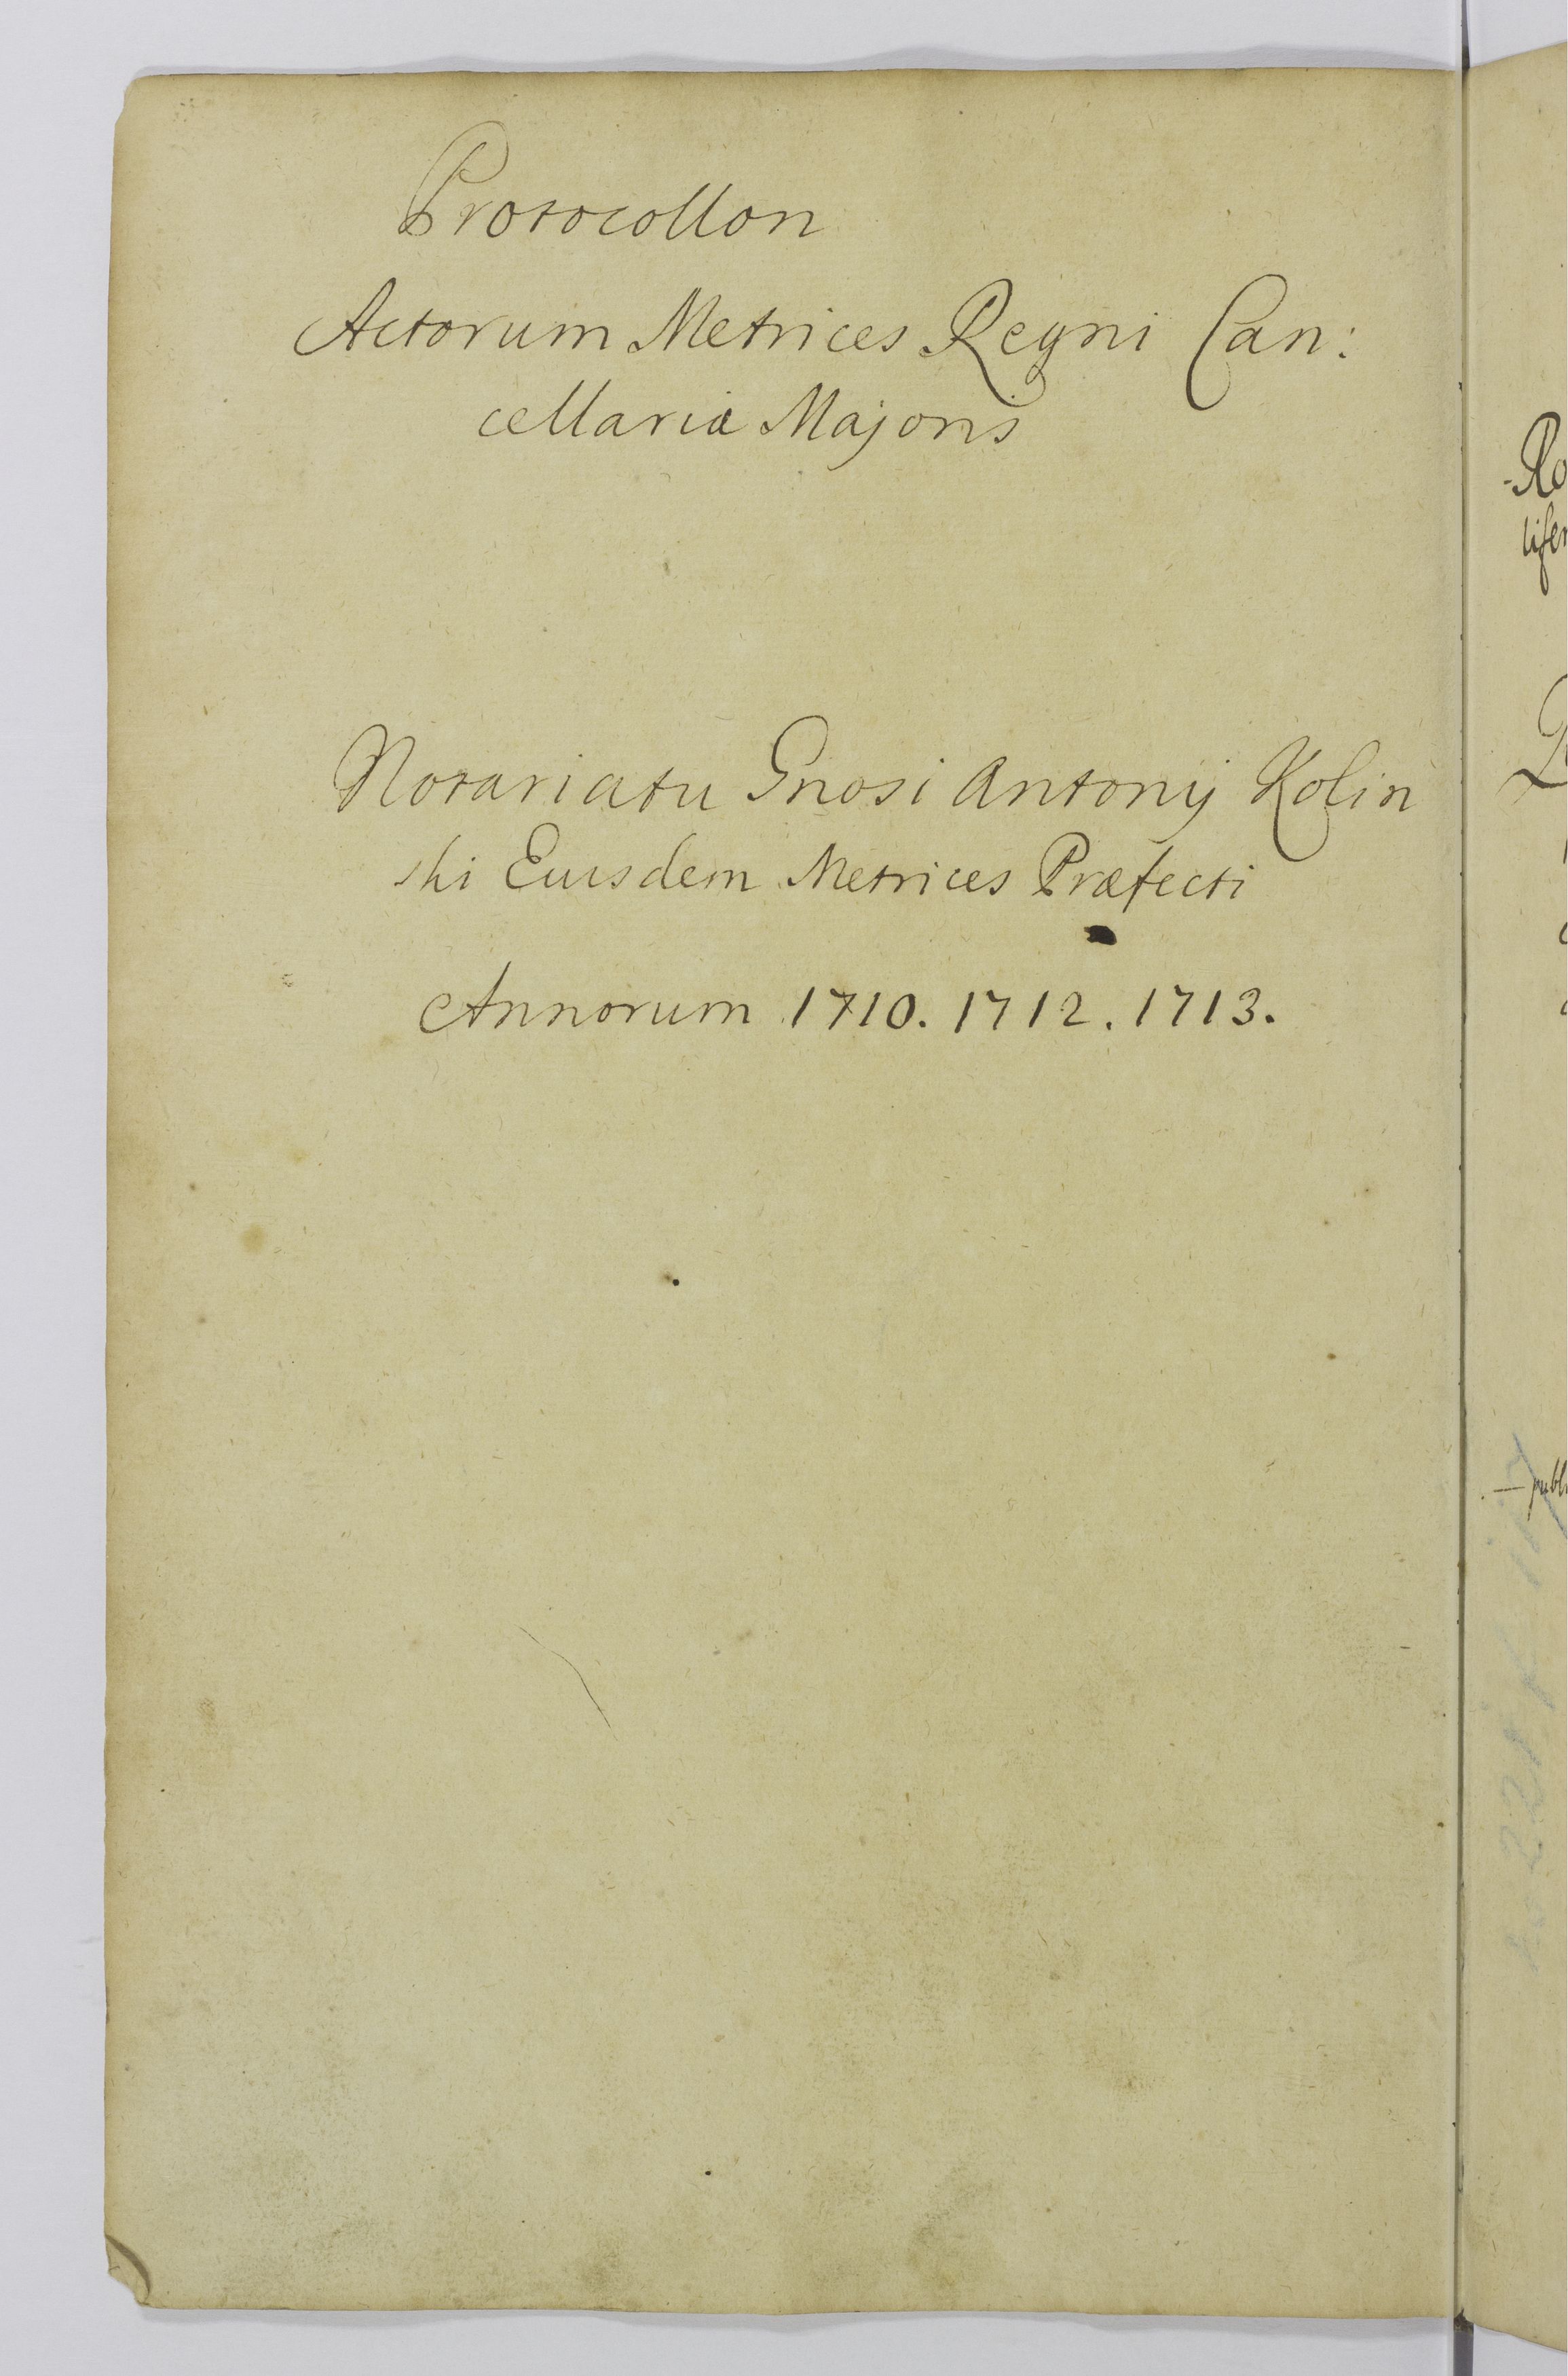 Protocollon
Actorum Metrices Regni Can:
cellariæ Majoris
Notariatu Gnosi Antonij Kolin
ski Eiusdem Metrices Præfecti
Annorum 1710. 1712. 1713.